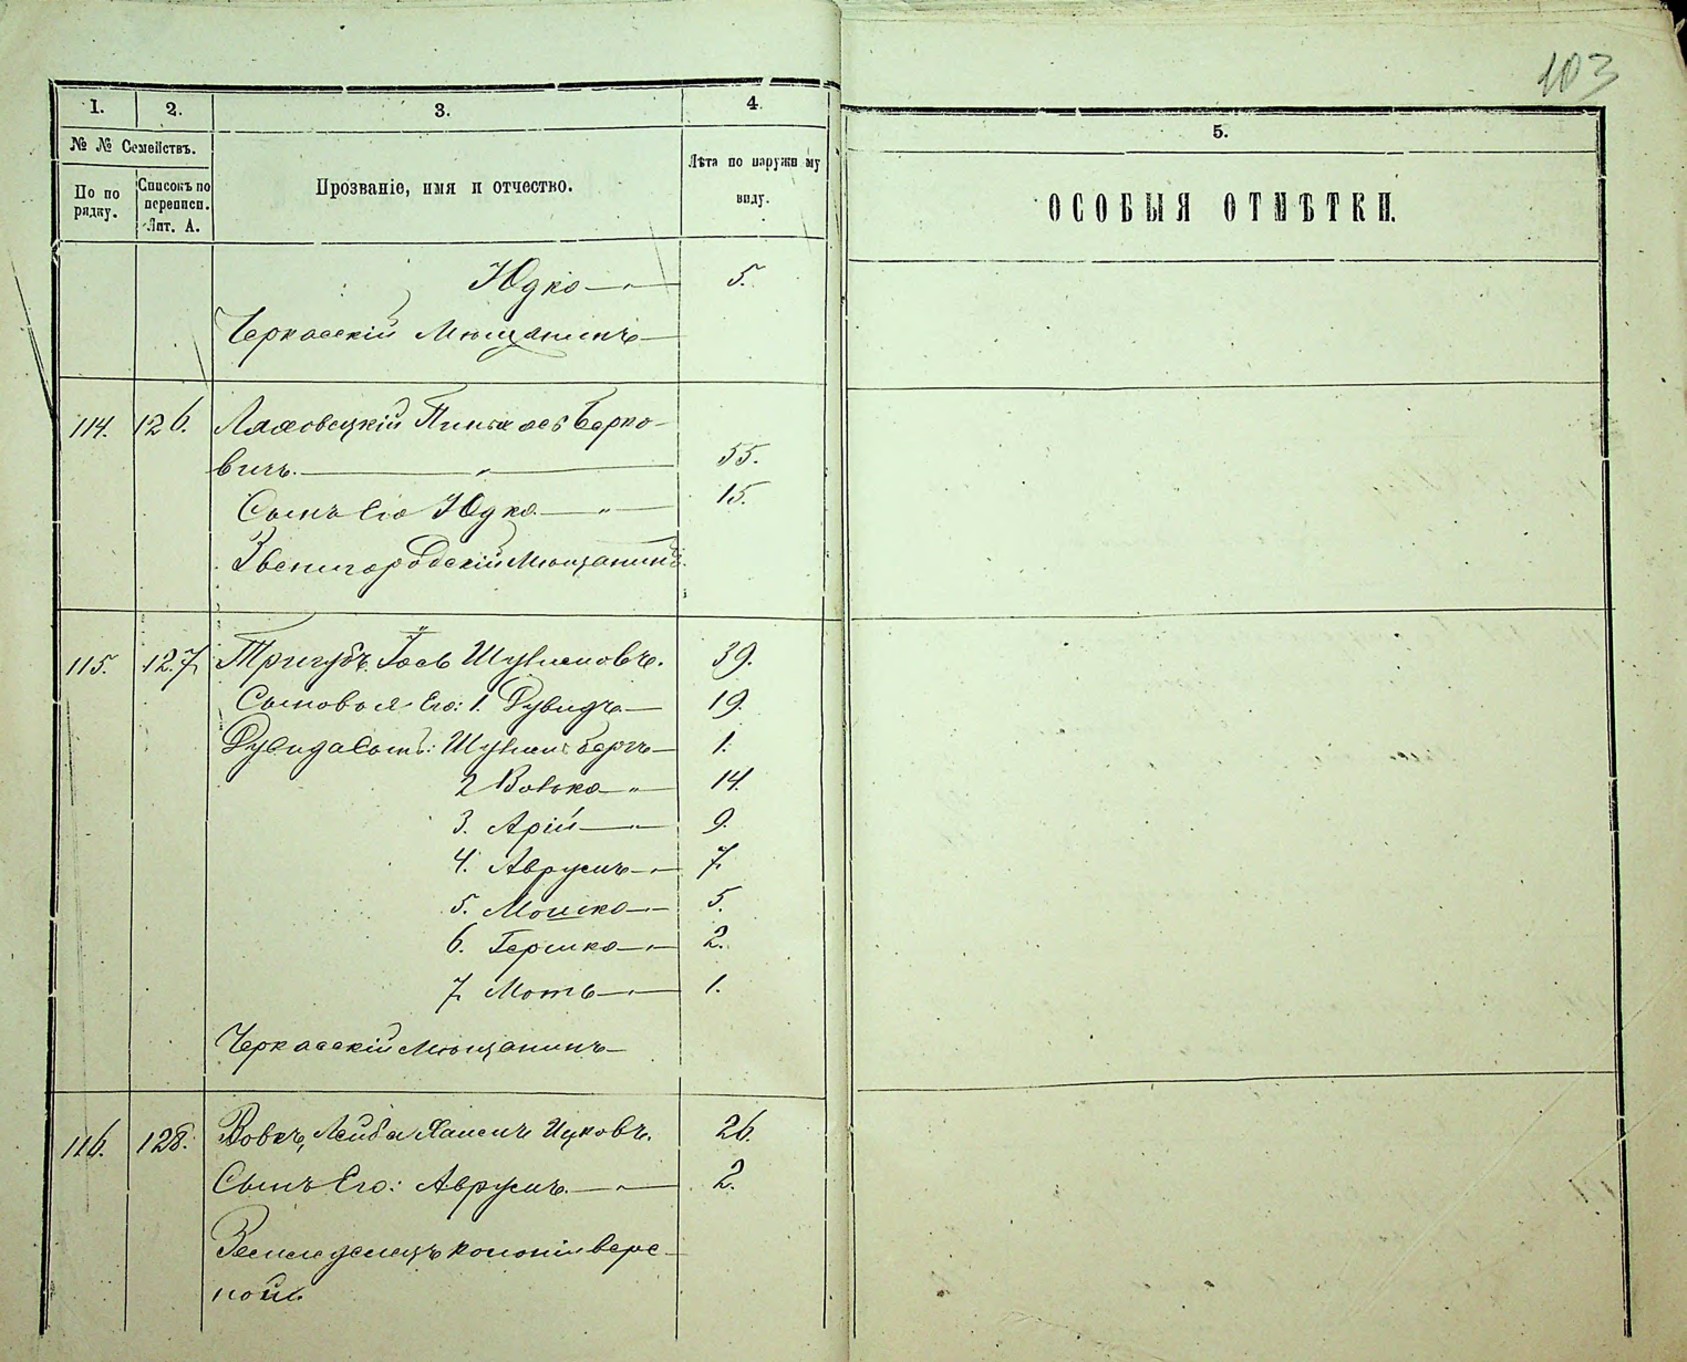 103
1. 2. 3. 4. 5.
№ № Семействъ.
По по рядку.
Списокъ по переписи. Лит. А.
Прозваніе, имя и отчество.
Лѣта по наружн му виду.
ОСОБЫЯ ОТМѢТКИ.
Юдко 5.
Черкасскій Мѣщанинъ
114. 126. Ляховецкій Пинхасъ Берко-
вичъ. 55.
Сынъ Его Юдко 15.
Звенигородскій Мѣщанинъ
115. 127 Тригубъ Іось Шулимовъ. 39.
Сыновья Его: 1. Дувидъ 19.
Дувида Сынъ: Шулимъ Беръ 1.
2 Волько 14.
3. Арій 9.
4. Аврумъ 7
5. Мошко 5.
6. Гершко 2.
7 Моть 1.
Черкасскій Мѣщанинъ
116. 128. Вовкъ, Лейба Хаимъ Ицковъ. 26.
Сынъ Его: Аврумъ 2.
Земледелецъ колоніи